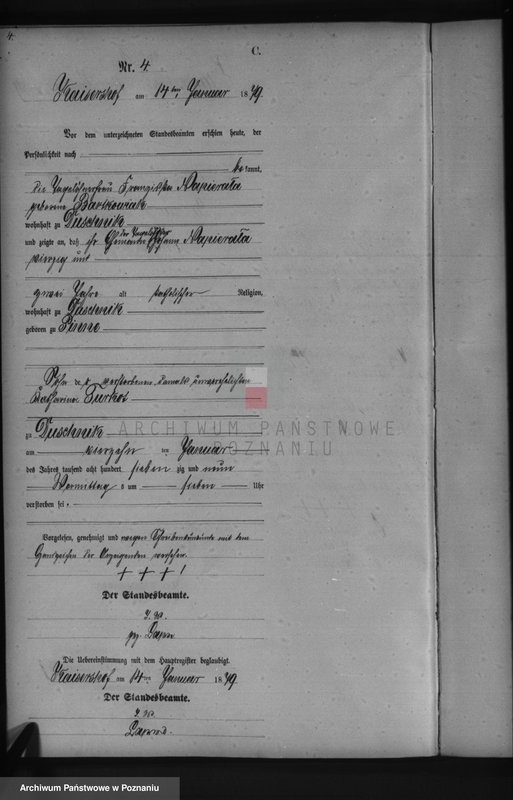 4.
C.
Nr. 4
Kaisershof am 14ten Januar 1879
Vor dem unterzeichneten Standesbeamten erschien heute, der
Persönlichkeit nach
bekannt,
die Tagelöhnerfrau Franziska Napierała
geborene Bartkowiak
wohnhaft zu Duschnik
und zeigte an, daß ihr Ehemann der Tagelöhner Napierała
vierzig und
zwei Jahre alt katholischer Religion,
wohnhaft zu Duschnik
geboren zu Pinne
Sohn der verstorbenen, damals unverehelichten
Katharina Turkot
zu Duschnik
am vierzehn ten Januar
des Jahres tausend acht hundert sieben zig und neun
Vormittags um sieben Uhr
verstorben sei.
Vorgelesen, genehmigt und wegen Schreibensunkunde mit dem
Handzeichen der Anzeigenden versehen.
+ + + !
Der Standesbeamte.
I. V.
gz.
Die Uebereinstimmung mit dem Hauptregister beglaubigt.
Kaisershof am 14ten Januar 1879
Der Standesbeamte.
I. V.
ARCHIWUM PAŃSTWOWE
W POZNANIU
Archiwum Państwowe w Poznaniu